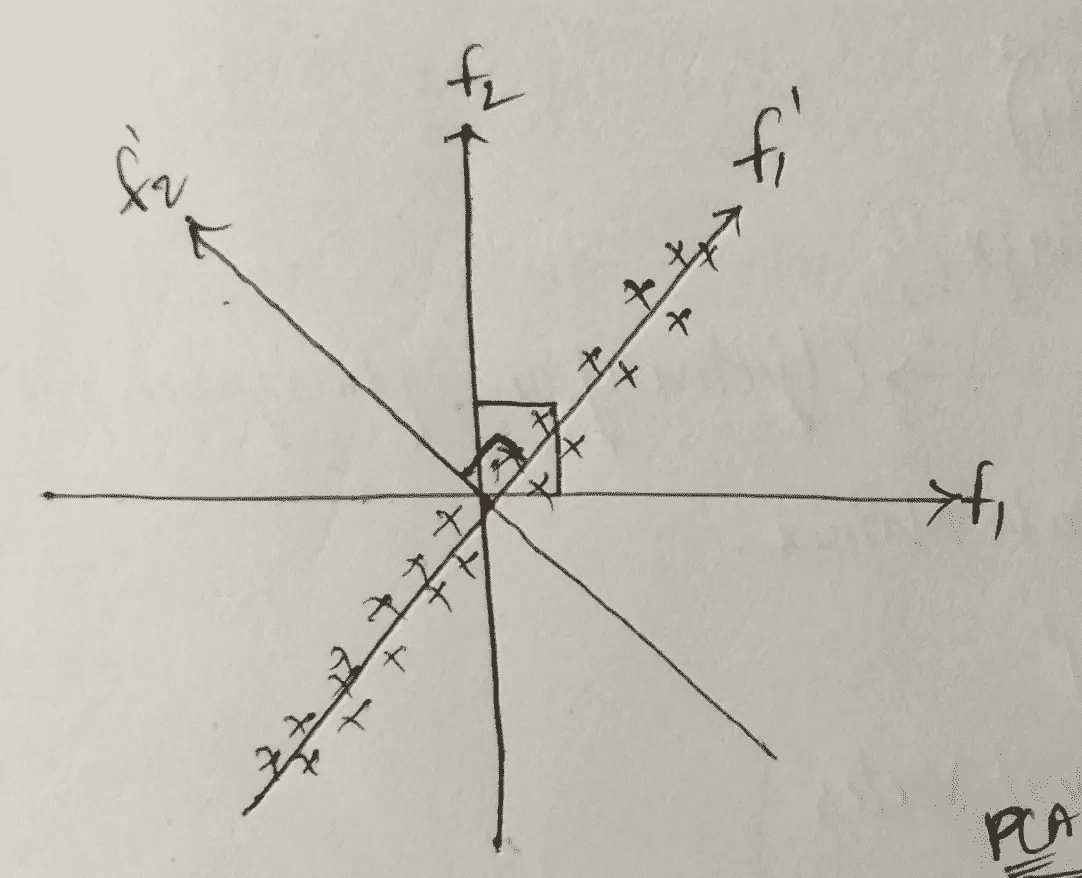 f₂
f₁'
f₂'
f₁
PCA